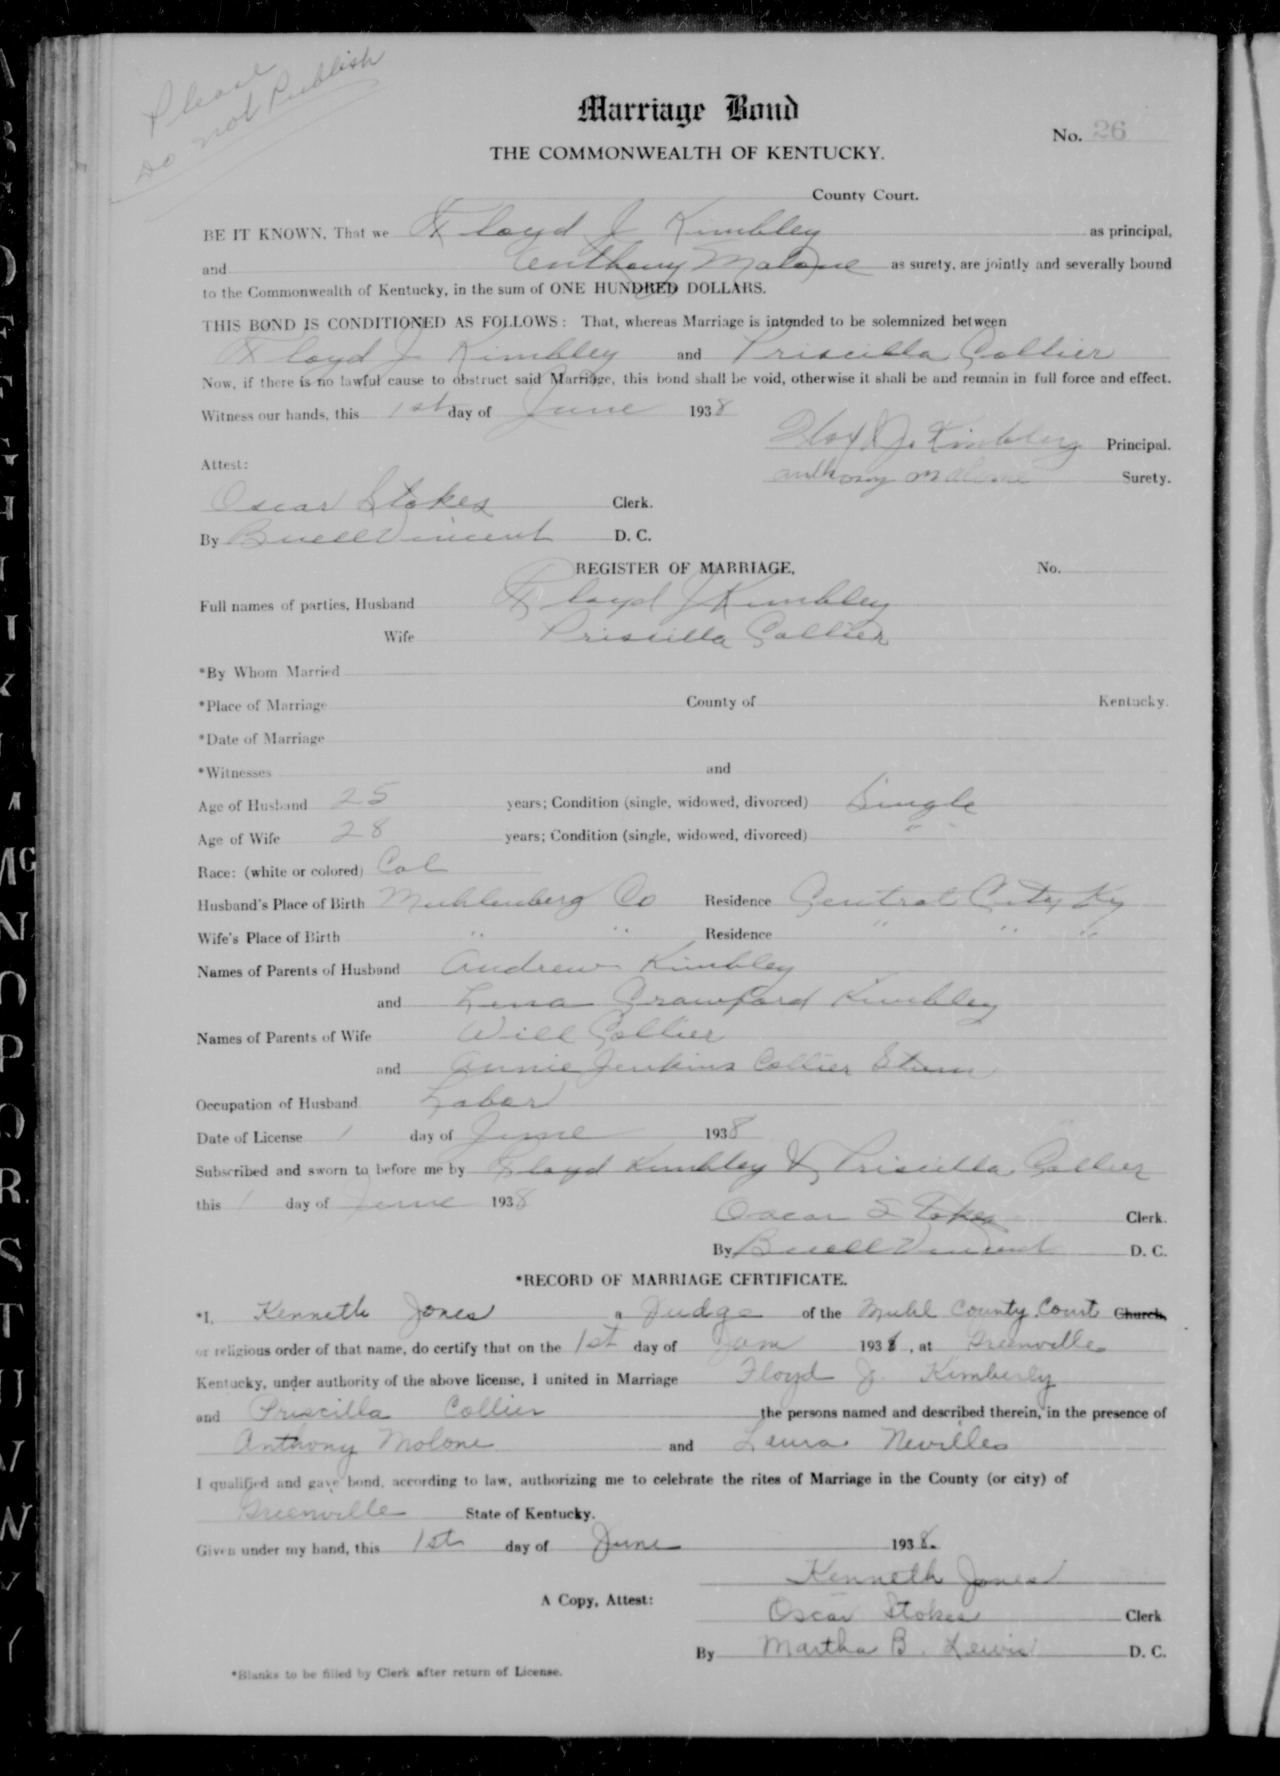 Please
Do not Publish
Marriage Bond
No. 26
THE COMMONWEALTH OF KENTUCKY.
County Court.
BE IT KNOWN, That we Floyd J Kimbley as principal,
and Anthony Malone as surety, are jointly and severally bound
to the Commonwealth of Kentucky, in the sum of ONE HUNDRED DOLLARS.
THIS BOND IS CONDITIONED AS FOLLOWS: That, whereas Marriage is intended to be solemnized between
Floyd J Kimbley and Priscilla Collier
Now, if there is no lawful cause to obstruct said Marriage, this bond shall be void, otherwise it shall be and remain in full force and effect.
Witness our hands, this 1st day of June 1938
Floyd J. Kimbley Principal.
Attest:
anthony malone Surety.
Oscar Stokes Clerk.
By Buell Vincent D. C.
REGISTER OF MARRIAGE, No.
Full names of parties, Husband Floyd J Kimbley
Wife Priscilla Collier
*By Whom Married
*Place of Marriage County of Kentucky.
*Date of Marriage
*Witnesses and
Age of Husband 25 years; Condition (single, widowed, divorced) Single
Age of Wife 28 years; Condition (single, widowed, divorced) " "
Race: (white or colored) Col
Husband's Place of Birth Muhlenberg Co Residence Central City Ky
Wife's Place of Birth " " Residence " " "
Names of Parents of Husband Andrew Kimbley
and Lena Crawford Kimbley
Names of Parents of Wife Will Collier
and Annie Jenkins Collier
Occupation of Husband Labor
Date of License 1 day of June 1938
Subscribed and sworn to before me by Floyd Kimbley & Priscilla Collier
this 1 day of June 1938
Oscar Stokes Clerk.
By Buell Vincent D. C.
*RECORD OF MARRIAGE CERTIFICATE.
*I, Kenneth Jones a Judge of the Muhl County Court Church,
or religious order of that name, do certify that on the 1st day of 1938, at Greenville
Kentucky, under authority of the above license, I united in Marriage Floyd J. Kimberly
and Priscilla Collier the persons named and described therein, in the presence of
Anthony Molone and Leura Nevilles
I qualified and gave bond, according to law, authorizing me to celebrate the rites of Marriage in the County (or city) of
Greenville State of Kentucky.
Given under my hand, this 1st day of June 1938.
Kenneth Jones
A Copy, Attest:
Oscar Stokes Clerk
By Martha B. Lewis D. C.
*Blanks to be filled by Clerk after return of License.